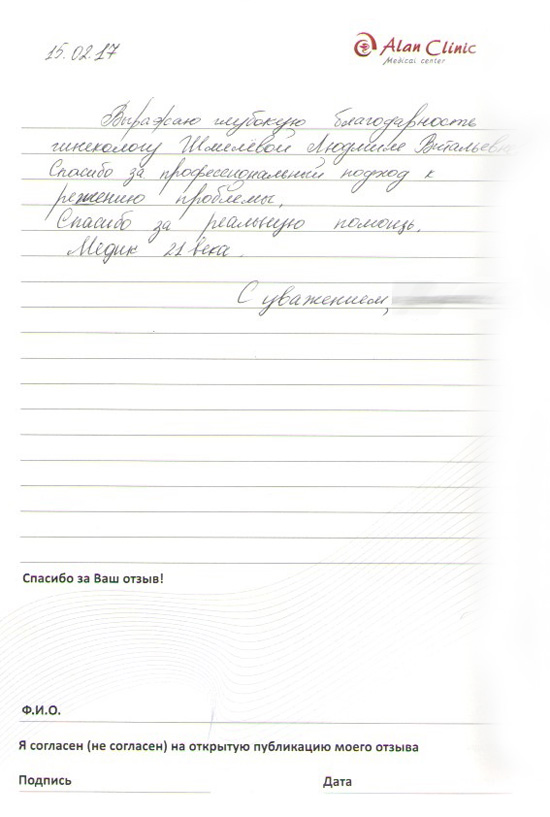 15.02.17
Alan Clinic
Medical center
Выражаю глубокую благодарность
гинекологу Шмелевой Людмиле Витальевн
Спасибо за професеиональный подход к
решению проблемы,
Спасибо за реальную помощь.
Медик 21 века.
С уважением,
Спасибо за Ваш отзыв!
Ф.И.О.
Я согласен (не согласен) на открытую публикацию моего отзыва
Подпись Дата